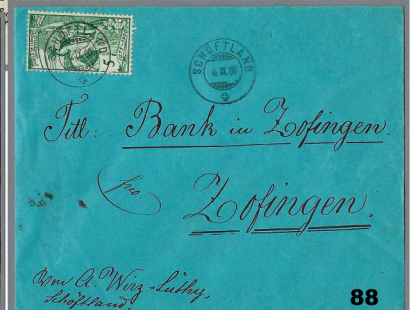 SCHÖFTLAND
5
SCHÖFTLAND
Titl: Bank in Zofingen.
pro
Zofingen.
Von A. Wirz-Lüthy,
Schöftland.
88